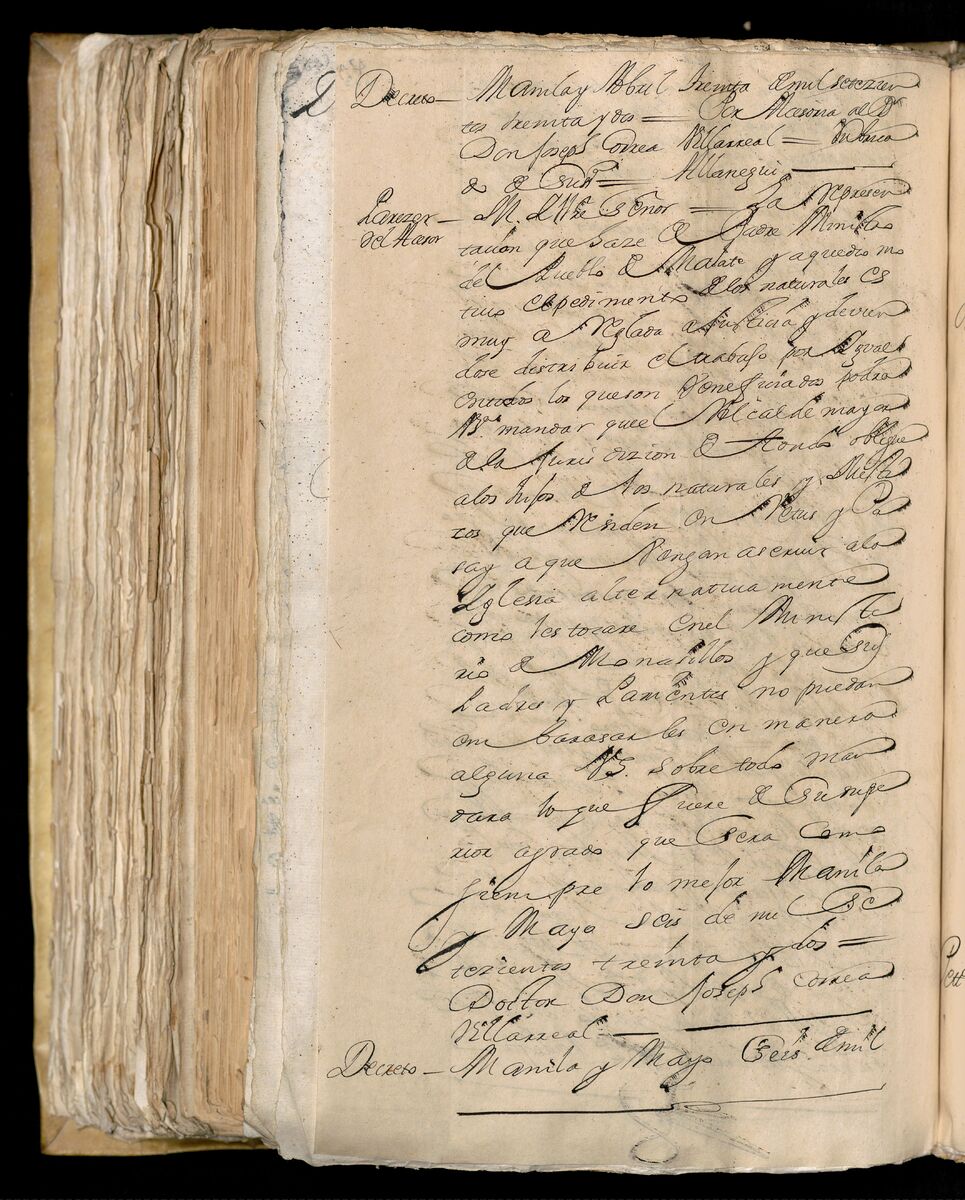 Decreto — Manila y Abril treinta de mil setezien
tos treinta y dos = Por Asesoria al Dr
Don Joseph Correa Villarreal = Rubrica
de Su Sria = Villanegui —
Parezer — M. Ille Señor = La Represen
del Asesor
tacion que haze el Padre Ministro
del Pueblo de Malate y aque dio mo
tivo el pedimento de los naturales es
muy a Reglada a Justicia y devien
dose distribuir el trabajo por Igual
en todos los que son Veneficiados podra
VS. mandar que el Alcalde mayor
de la Jurisdizion de Tondo obligue
a los hijos de los naturales y Mesti
zos que Residen en y Pa
say a que Vengan a servir a la
Iglesia alternativamente
como les tocare en el Ministe
rio de Monasillos y que sus
Padres y Parientes no puedan
embarasarles en manera
alguna VS. sobre todo man
dara lo que fuere de Su supe
rior agrado que sera como
siempre lo mejor Manila
y Mayo seis de mil Se
tezientos treinta y dos =
Doctor Don Joseph Correa
Villarreal —
Decreto — Manila y Mayo Seis de mil